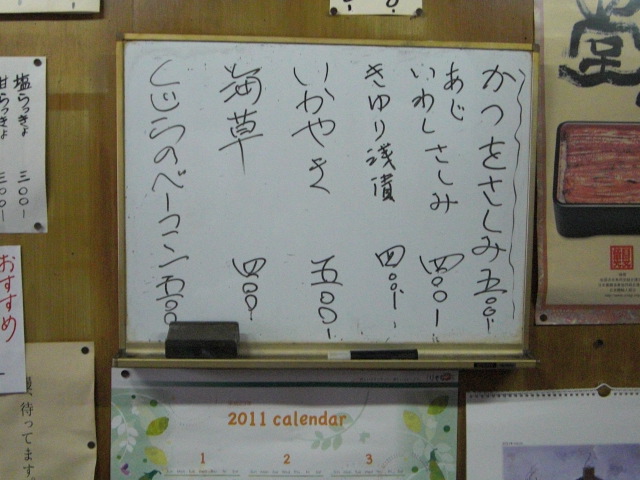 かつをさしみ 五〇〇-
あじ
いわし さしみ 四〇〇-
きゆり浅漬 四〇〇-
いかやき 五〇〇-
海草 四〇〇-
くじらのベーコン 五〇〇
塩らっきょ 三〇〇-
甘らっきょ 三〇〇-
おすすめ
待ってます。
2011 calendar
1 2 3